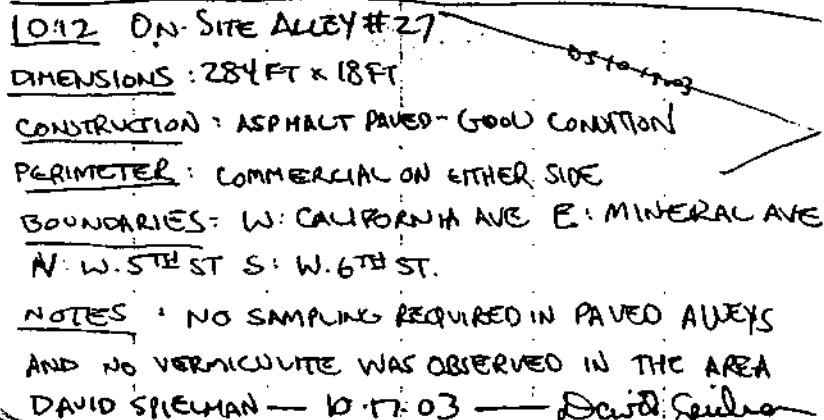 10:12 ON-SITE ALLEY #27
DIMENSIONS: 284 FT x 18 FT
CONSTRUCTION: ASPHALT PAVED - GOOD CONDITION
PERIMETER: COMMERCIAL ON EITHER SIDE
BOUNDARIES: W: CALIFORNIA AVE E: MINERAL AVE
N: W. 5TH ST S: W. 6TH ST.
NOTES: NO SAMPLING REQUIRED IN PAVED ALLEYS
AND NO VERMICULITE WAS OBSERVED IN THE AREA
DAVID SPIELMAN — 10.17.03 — David Spielman